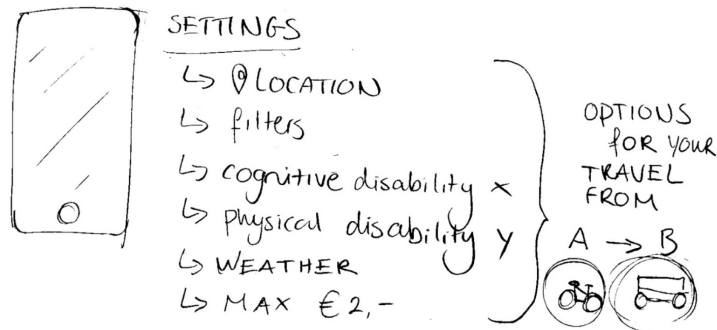 SETTINGS
↳ LOCATION
↳ filters
↳ cognitive disability x
↳ physical disability y
↳ WEATHER
↳ MAX €2,-
OPTIONS
FOR YOUR
TRAVEL
FROM
A → B